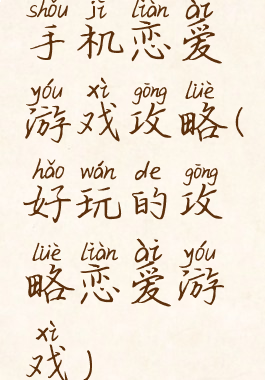 shǒu jī liàn ài
手机恋爱
yóu xì gōng lüè
游戏攻略(
hǎo wán de gōng
好玩的攻
lüè liàn ài yóu
略恋爱游
xì
戏)